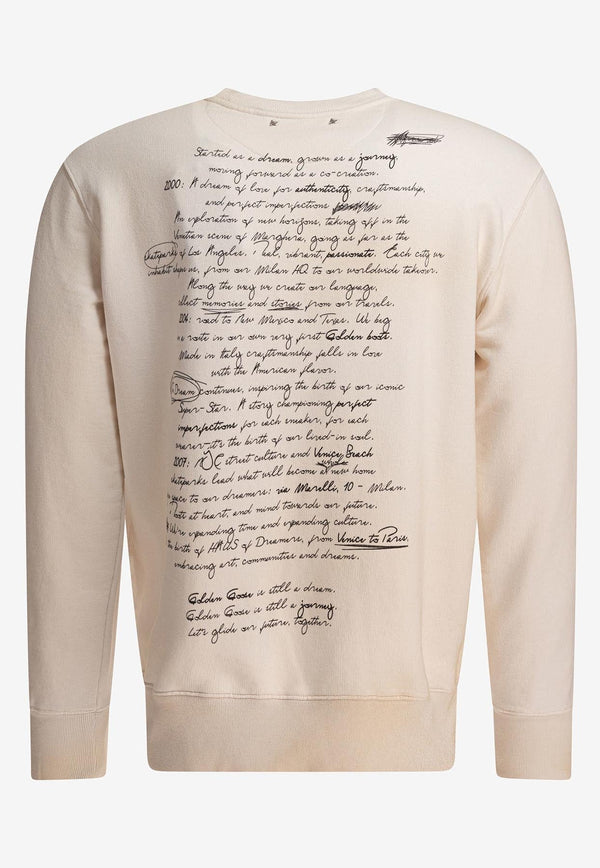 Started as a dream, grown as a journey,
moving forward as a co-creation.
2000: A dream of love for authenticity, craftsmanship,
and perfect imperfections
An exploration of new horizons, taking off in the
Venetian scene of Marghera, going as far as the
skateparks of Los Angeles. real, vibrant, passionate. Each city we
inhabit us, from our Milan HQ to our worldwide takeover.
Along the way we create our language,
memories and stories from our travels.
road to New Mexico and Texas. We
route in our own very first Golden boots.
Made in Italy craftsmanship falls in love
with the American flavor.
Dream continues, inspiring the birth of our iconic
Super-Star. A story championing perfect
imperfections for each sneaker, for each
it's the birth of our lived-in soul.
2007: street culture and Venice Beach
skateparks lead what will become new home
space to our dreamers: via Morelli, 10 - Milan.
at heart, and mind towards our future.
We're expanding time and expanding culture.
birth of HAUS of Dreamers, from Venice to Paris,
embracing art, communities and dreams.
Golden Goose is still a dream.
Golden Goose is still a journey.
Let's glide our future, together.